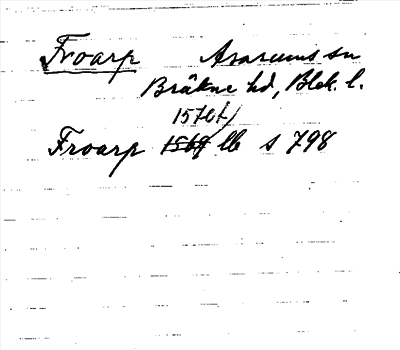 Froarp Asarums sn
Bräkne hd, Blek. l.
1570 t)
Froarp 1569 lb s 798